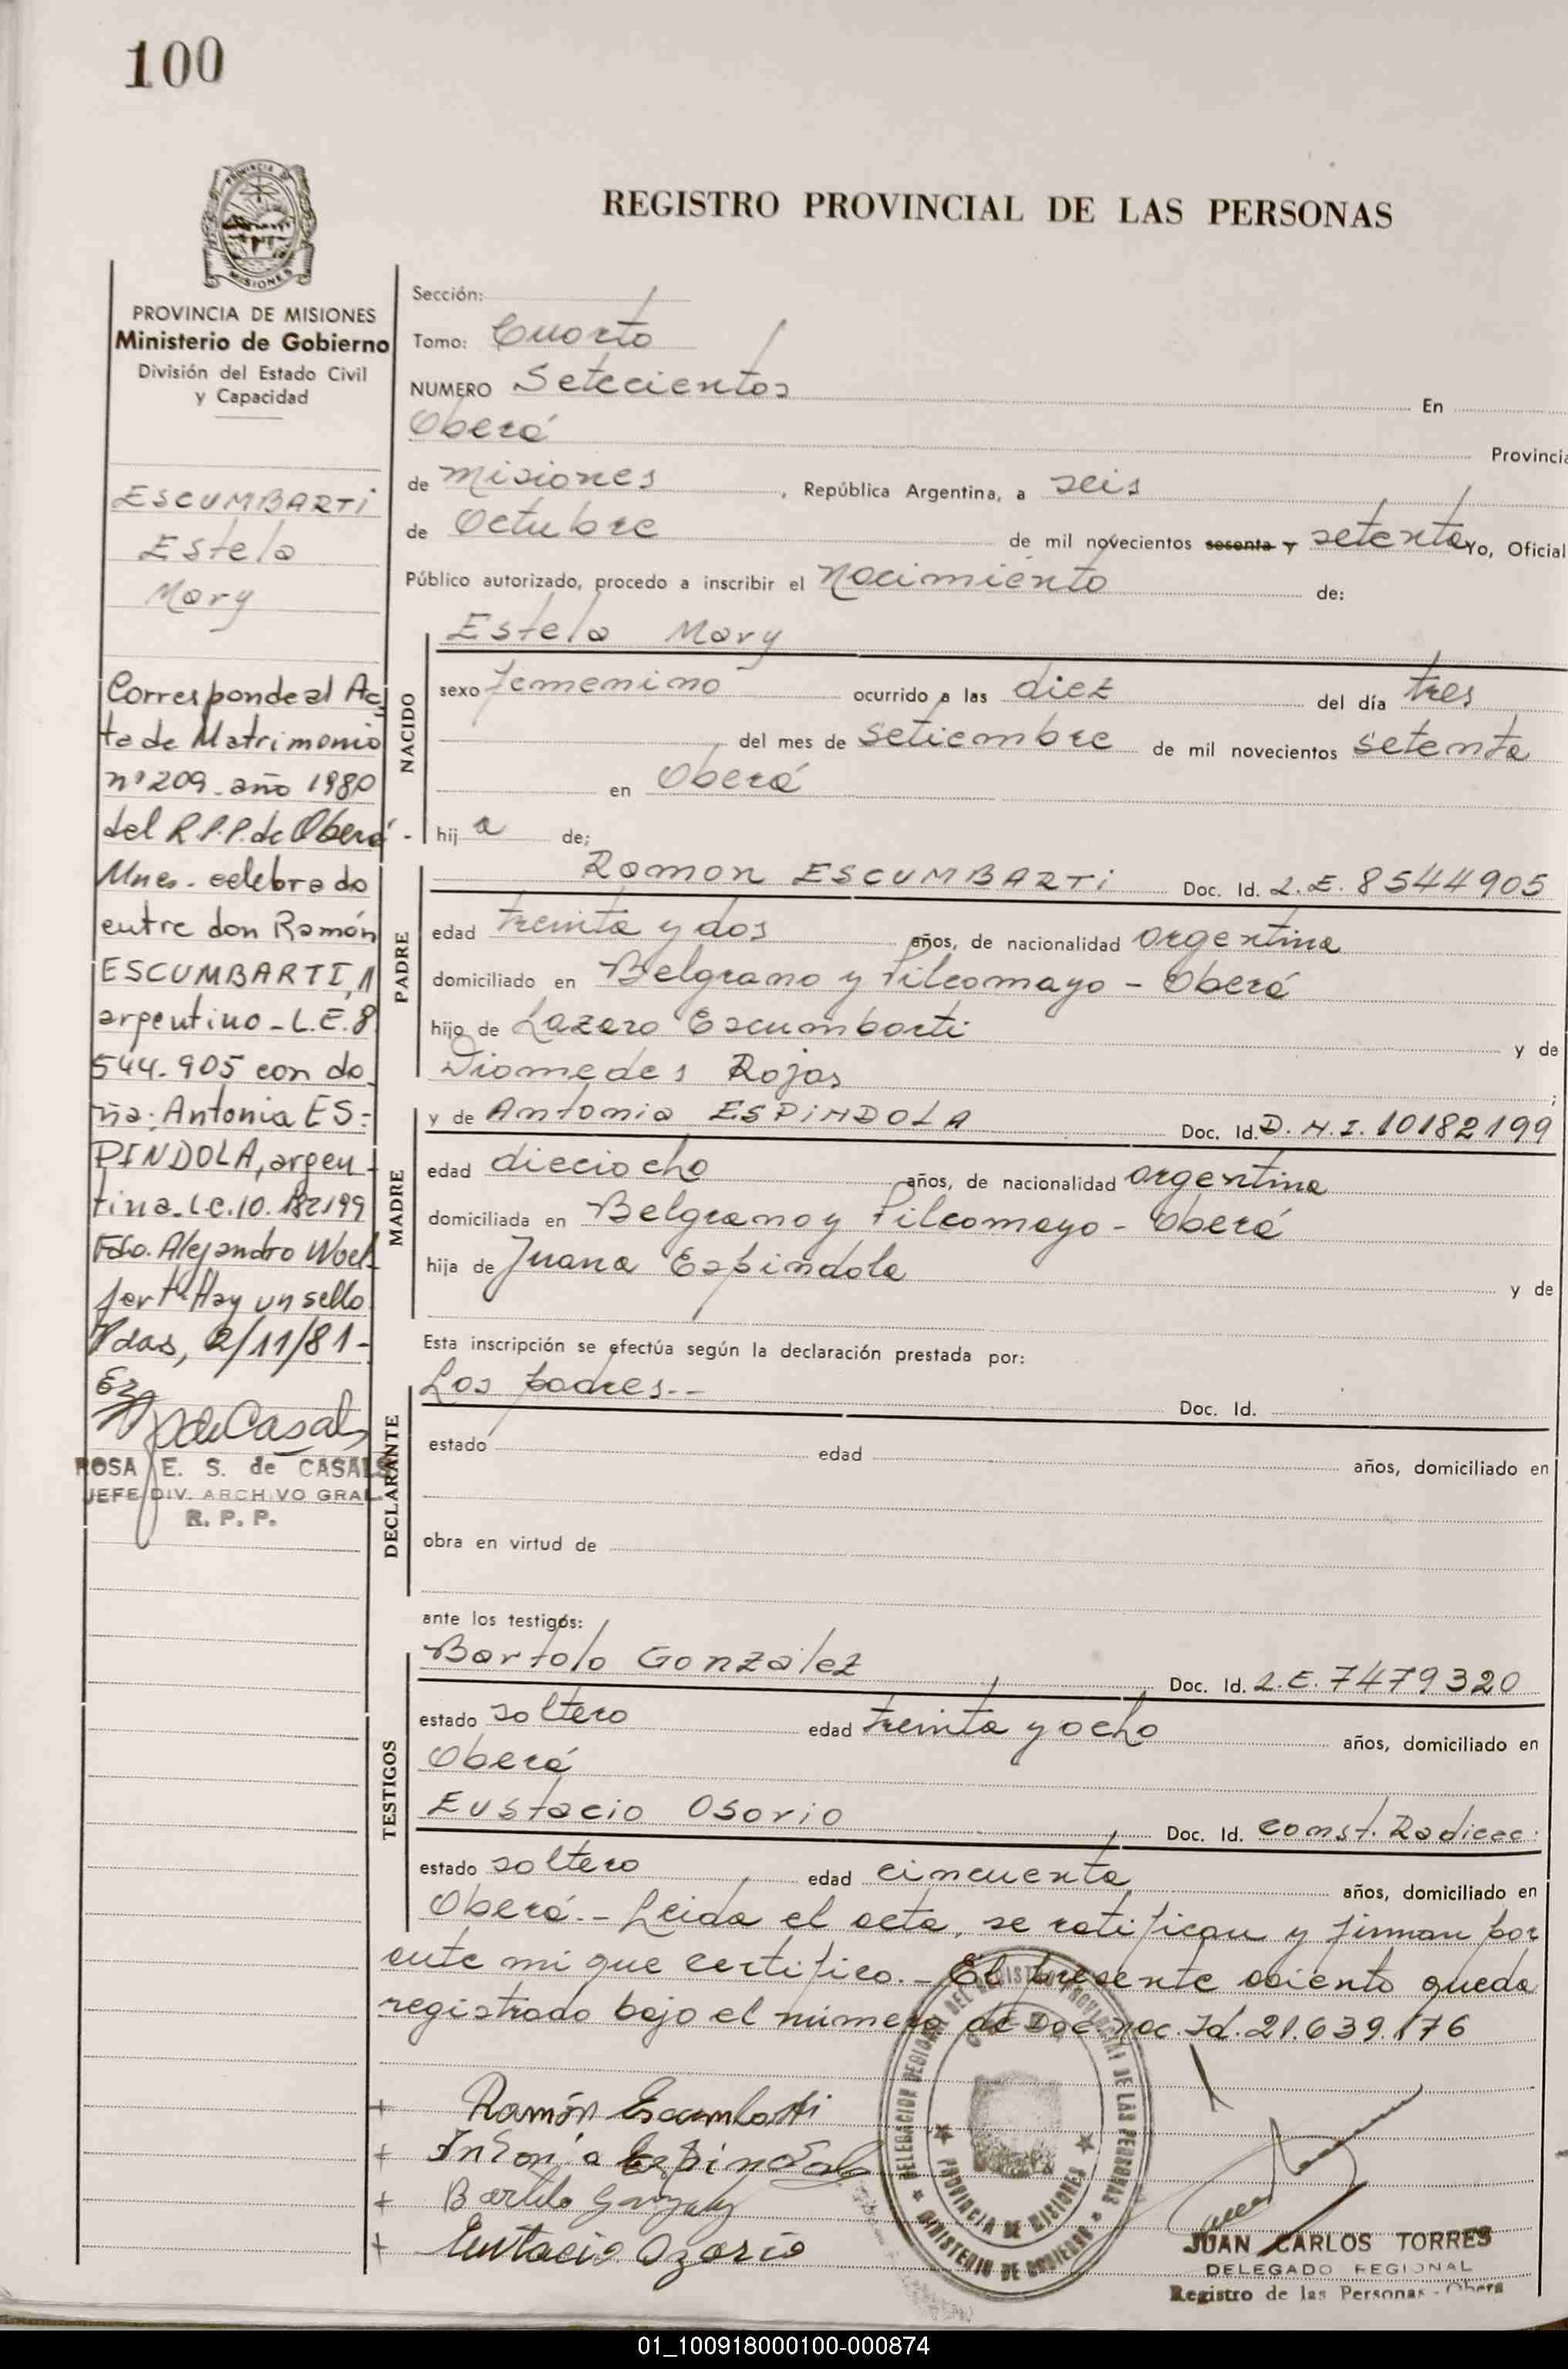 100
REGISTRO PROVINCIAL DE LAS PERSONAS
PROVINCIA DE MISIONES
Ministerio de Gobierno
División del Estado Civil
y Capacidad
ESCUMBARTI
Estela
Mary
Corresponde al Ac
ta de Matrimonio
nº 209 año 1980
del R.P.P. de Oberá -
Mnes. celebrado
entre don Ramón
ESCUMBARTI,
argentino - L.E. 8
544.905 con do
ña: Antonia ES=
PINDOLA, argen-
tina - L.C. 10.182199
Fdo. Alejandro
Hay un sello
Pdas, 2/11/81 -
ROSA E. S. de CASALS
JEFE DIV. ARCHIVO GRAL.
R. P. P.
Sección:
Tomo: Cuarto
NUMERO Setecientos En
Oberá Provincia
de Misiones , República Argentina, a seis
de Octubre de mil novecientos sesenta y setenta Yo, Oficial
Público autorizado, procedo a inscribir el Nacimiento de:
NACIDO
Estela Mary
sexo femenino ocurrido a las diez del día tres
del mes de setiembre de mil novecientos setenta
en Oberá
hij a de;
PADRE
Ramon ESCUMBARTI Doc. Id. L.E. 8544905
edad treinta y dos años, de nacionalidad argentina
domiciliado en Belgrano y Pilcomayo - Oberá
hijo de Lazaro Escumbarti y de
Diomedes Rojas ;
MADRE
y de Antonia ESPINDOLA Doc. Id. D.N.I. 10182199
edad dieciocho años, de nacionalidad argentina
domiciliada en Belgrano y Pilcomayo - Oberá
hija de Juana Espindola y de
Esta inscripción se efectúa según la declaración prestada por:
DECLARANTE
Los padres.-- Doc. Id.
estado edad años, domiciliado en
obra en virtud de
ante los testigos:
TESTIGOS
Bartolo Gonzalez Doc. Id. L.E. 7479320
estado soltero edad treinta y ocho años, domiciliado en
Oberá
Eustacio Osorio Doc. Id. const. Radicac.
estado soltero edad cincuenta años, domiciliado en
Oberá.- Leida el acta, se ratifican y firman por
ante mi que certifico.- El presente asiento queda
registrado bajo el número de Doc. Nac. Id. 21.639.176
+ Ramón Escumbarti
+ Antonia Espindola
+ Bartolo Gonzalez
+ Eustacio Ozorio
DELEGACION REGIONAL DEL REGISTRO PROVINCIAL DE LAS PERSONAS
PROVINCIA DE MISIONES
MINISTERIO DE GOBIERNO
JUAN CARLOS TORRES
DELEGADO REGIONAL
Registro de las Personas - Oberá
01_100918000100-000874